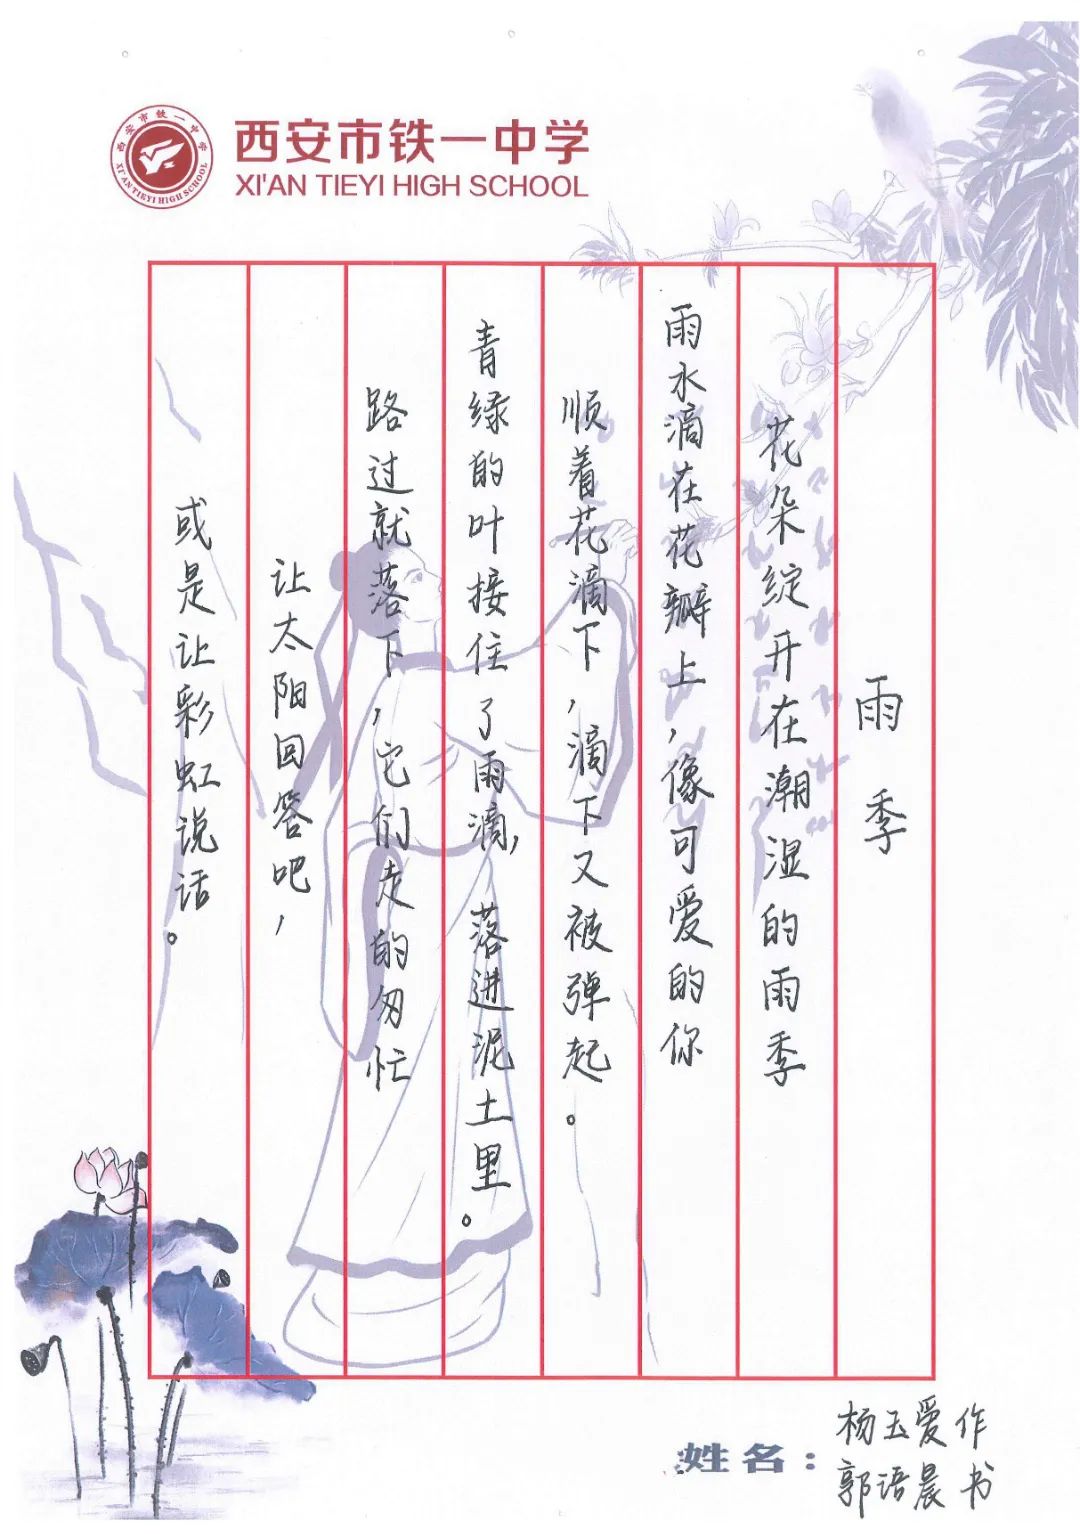 西安市铁一中学
XI'AN TIEYI HIGH SCHOOL
西安市铁一中学
XI'AN TIEYI HIGH SCHOOL
雨季
花朵绽开在潮湿的雨季
雨水滴在花瓣上，像可爱的你
顺着花滴下，滴下又被弹起。
青绿的叶接住了雨滴，落进泥土里。
路过就落下，它们走的匆忙
让太阳回答吧，
或是让彩虹说话。
姓名：
杨玉爱作
郭语晨书